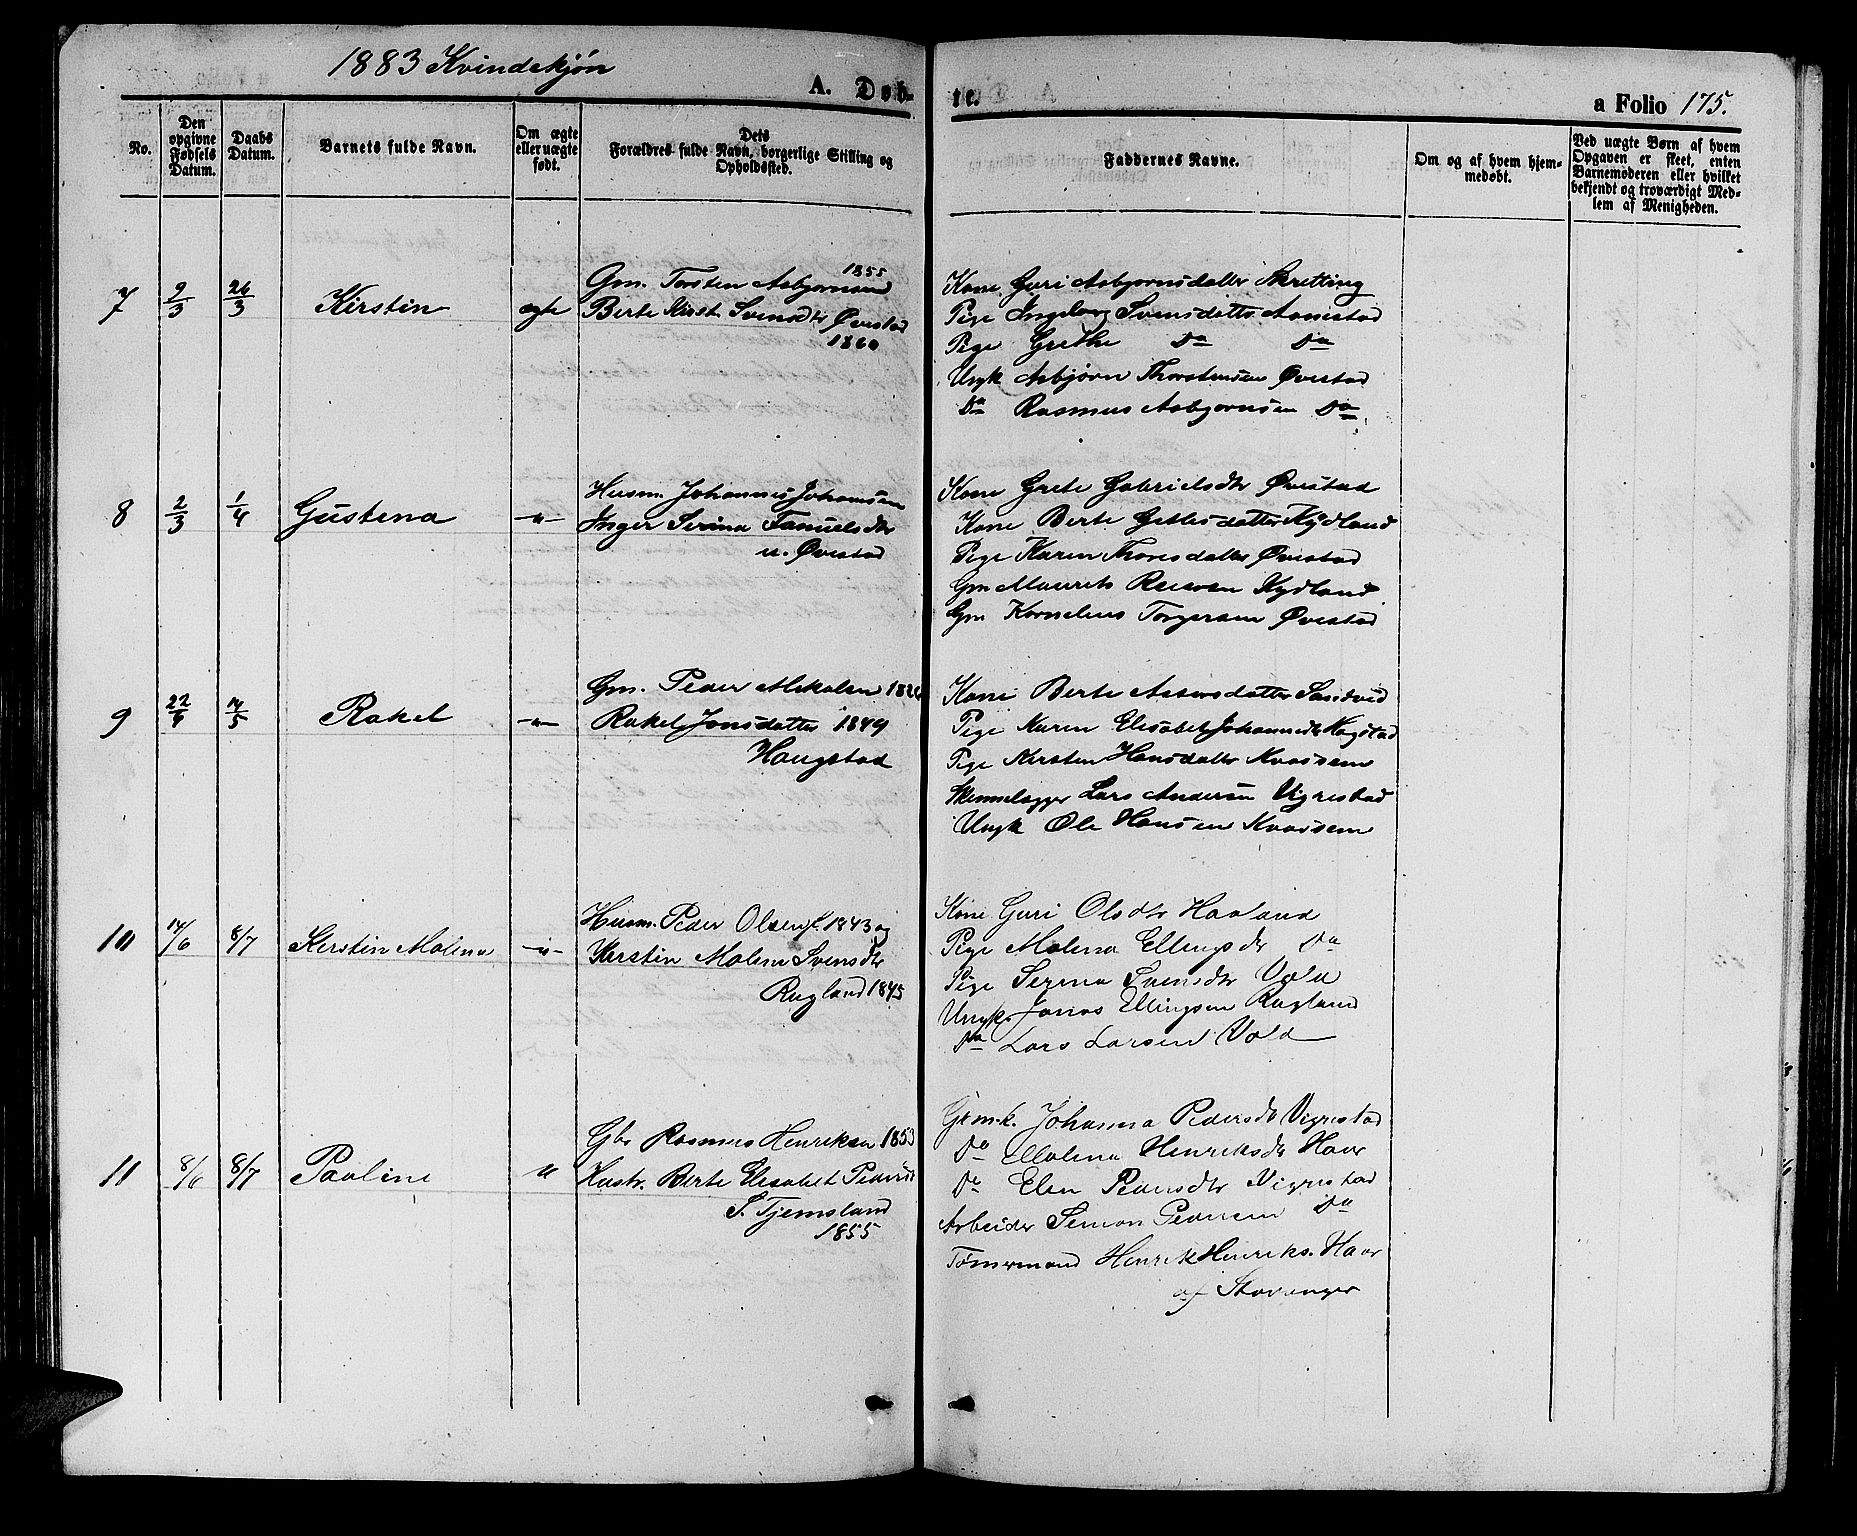 1883 Kvindekjøn
A. Døb-
te.
a Folio 175.
No.
Den opgivne Fødsels Datum.
Daabs Datum.
Barnets fulde Navn.
Om ægte eller uægte født.
Dets Forældres fulde Navn, borgerlige Stilling og Opholdssted.
Faddernes Navne.
Om og af hvem hjemmedøbt.
Ved uægte Børn af hvem Opgaven er skeet, enten Barnemoderen eller hvilket bekjendt og troværdigt Medlem af Menigheden.
7 2/3 26/3 Kirstin ægte
1855
Gm. Torsten Asbjornsen
Berte Kirst. Svensdtr Øvestad
1860
Kone Guri Asbjornsdatter Skretting
Pige Ingeborg Svensdatter Aanestad
Pige Grethe Do Do
Ungk Asbjørn Thorstensen Øvestad
Do Rasmus Asbjornsen Do
8 2/3 1/4 Gustena -"-
Husm. Johannes Johansen
Inger Serina Tanuelsdtr
u. Øvestad
Kone Grete Gabrielsdtr Øvestad
Kone Berte Getlesdatter Kydland
Pige Karen Thoresdatter Øvestad
Gm Maurits Kydland
Gm Kornelius Torgersen Øvestad
9 22/4 14/5 Rakel -"-
Gm. Peder Mikalsen
Rakel Jonsdatter 1849
Haugstad
Kone Berte Assersdatter Sandvid
Pige Karen Elisabet Johannesdtr Hogstad
Pige Kersten Hansdatter Kvassem
Lars Andersen Vigrestad
Ungk Ole Hansen Kvassem
10 14/6 8/7 Kerstin Malina -"-
Husm. Peder Olsen f. 1843 og
Kerstin Malene Svensdtr
Rugland 1845
Kone Guri Olsdtr Haaland
Pige Malena Ellingsdtr Do
Pige Serina Svensdtr Vold
Ungk. Jonas Ellingsen Rugland
Do Lars Larsen Vold
11 8/6 8/7 Pauline "
Gbr Rasmus Henriksen 1853
Hustr. Berte Elisabet Pedersdt
S. Tjemsland
1855
Grm.k. Johanna Pedersdtr Vigrestad
Do Malena Henriksdtr Haar
Do Elen Pedersdtr Vigrestad
Arbeider Simon Pedersen Do
Tømermand Henrik Henriks. Haar
af Stavanger